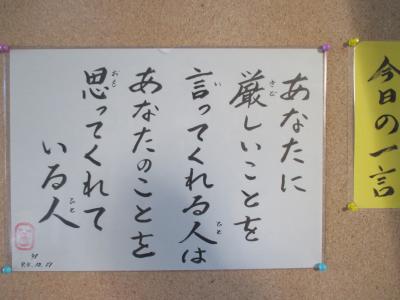 今日の一言
あなたに
厳しいことを
言ってくれる人は
あなたのことを
思ってくれて
いる人